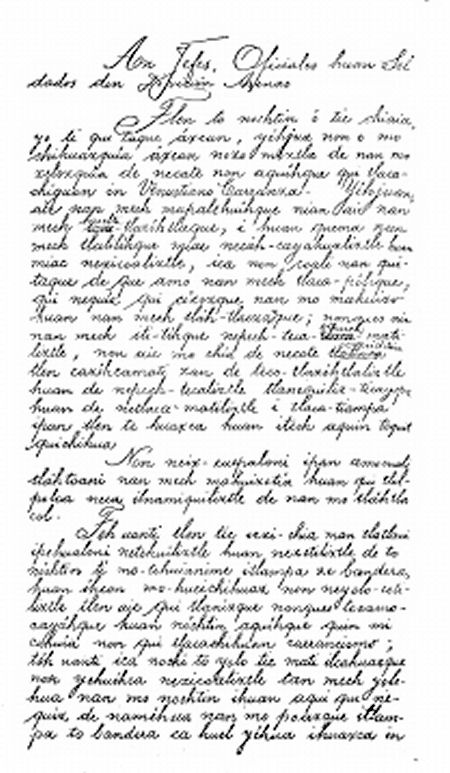 Aon Jefes, Oficiales huan Sol
dados den Division Arenas
Tlen to nochtin ó tic chiaia,
yo ti qui taque áxcan, yehqua non o mo
chihuazquia áxcan noso moxtla de nan mo
xeloxquia de necate non aquihque qui tlaca-
chihuan in Venustiano Carranza. Yehjuan,
aic nan mech mapalehuihque nian aic nan
mech tlazohtlaque, i huan quema nan
mech tlalilihque miac necah-cayahualiztle huan
miac nexicoaliztle, ica non, cuale nan qui-
taque de que amo nan mech tlaca-pohque,
qui nequia qui cuezque nan mo mahuizo
huan nan mech tlah-tlaczazque; nonques aic
nan mech iti-tihque nepech-teca-mati-
liztle, non aic mo chia de necate
tlen caxihcamate zan de teco-tlaxihtlaliztle
huan de nepech-tecaliztle tlanequiliz-ticayopa
huan de netlaca-matiliztle i tlaca-tiampa
ipan tlen te huaxca huan itech aquin tequit
quichihua
Non neix-cuepaloni ipan amo cuale
tlahtoani nan mech mahuizotia huan qui tlil-
poloa neca ilnamiquiliztle de nan mo tlahtla
col.
Toh uanti tlen tic nexi-chia nan tlatlani
ipehualoni netehuiliztle huan nexetiliztle de to
nochtin ti mo-tehuianime itlampa ze bandera,
huan ihcon mo-hueichihuaz non neyolo-ceti-
liztle tlen aic qui tlanizque nonques texamo-
cayahque huan nochtin aquihque quin mi
cohuia non qui tlacachihuan carrancismo;
toh uanti ica nochi to yolo tic mati ilcahuazque
non yehuihca nexicoaliztle tan mech yole-
hua nan mo nochtin ihuan aqui qui ne-
quiz de namehua nan mo polizque itlam-
pa to bandera ca huel yehua ihuaxca in